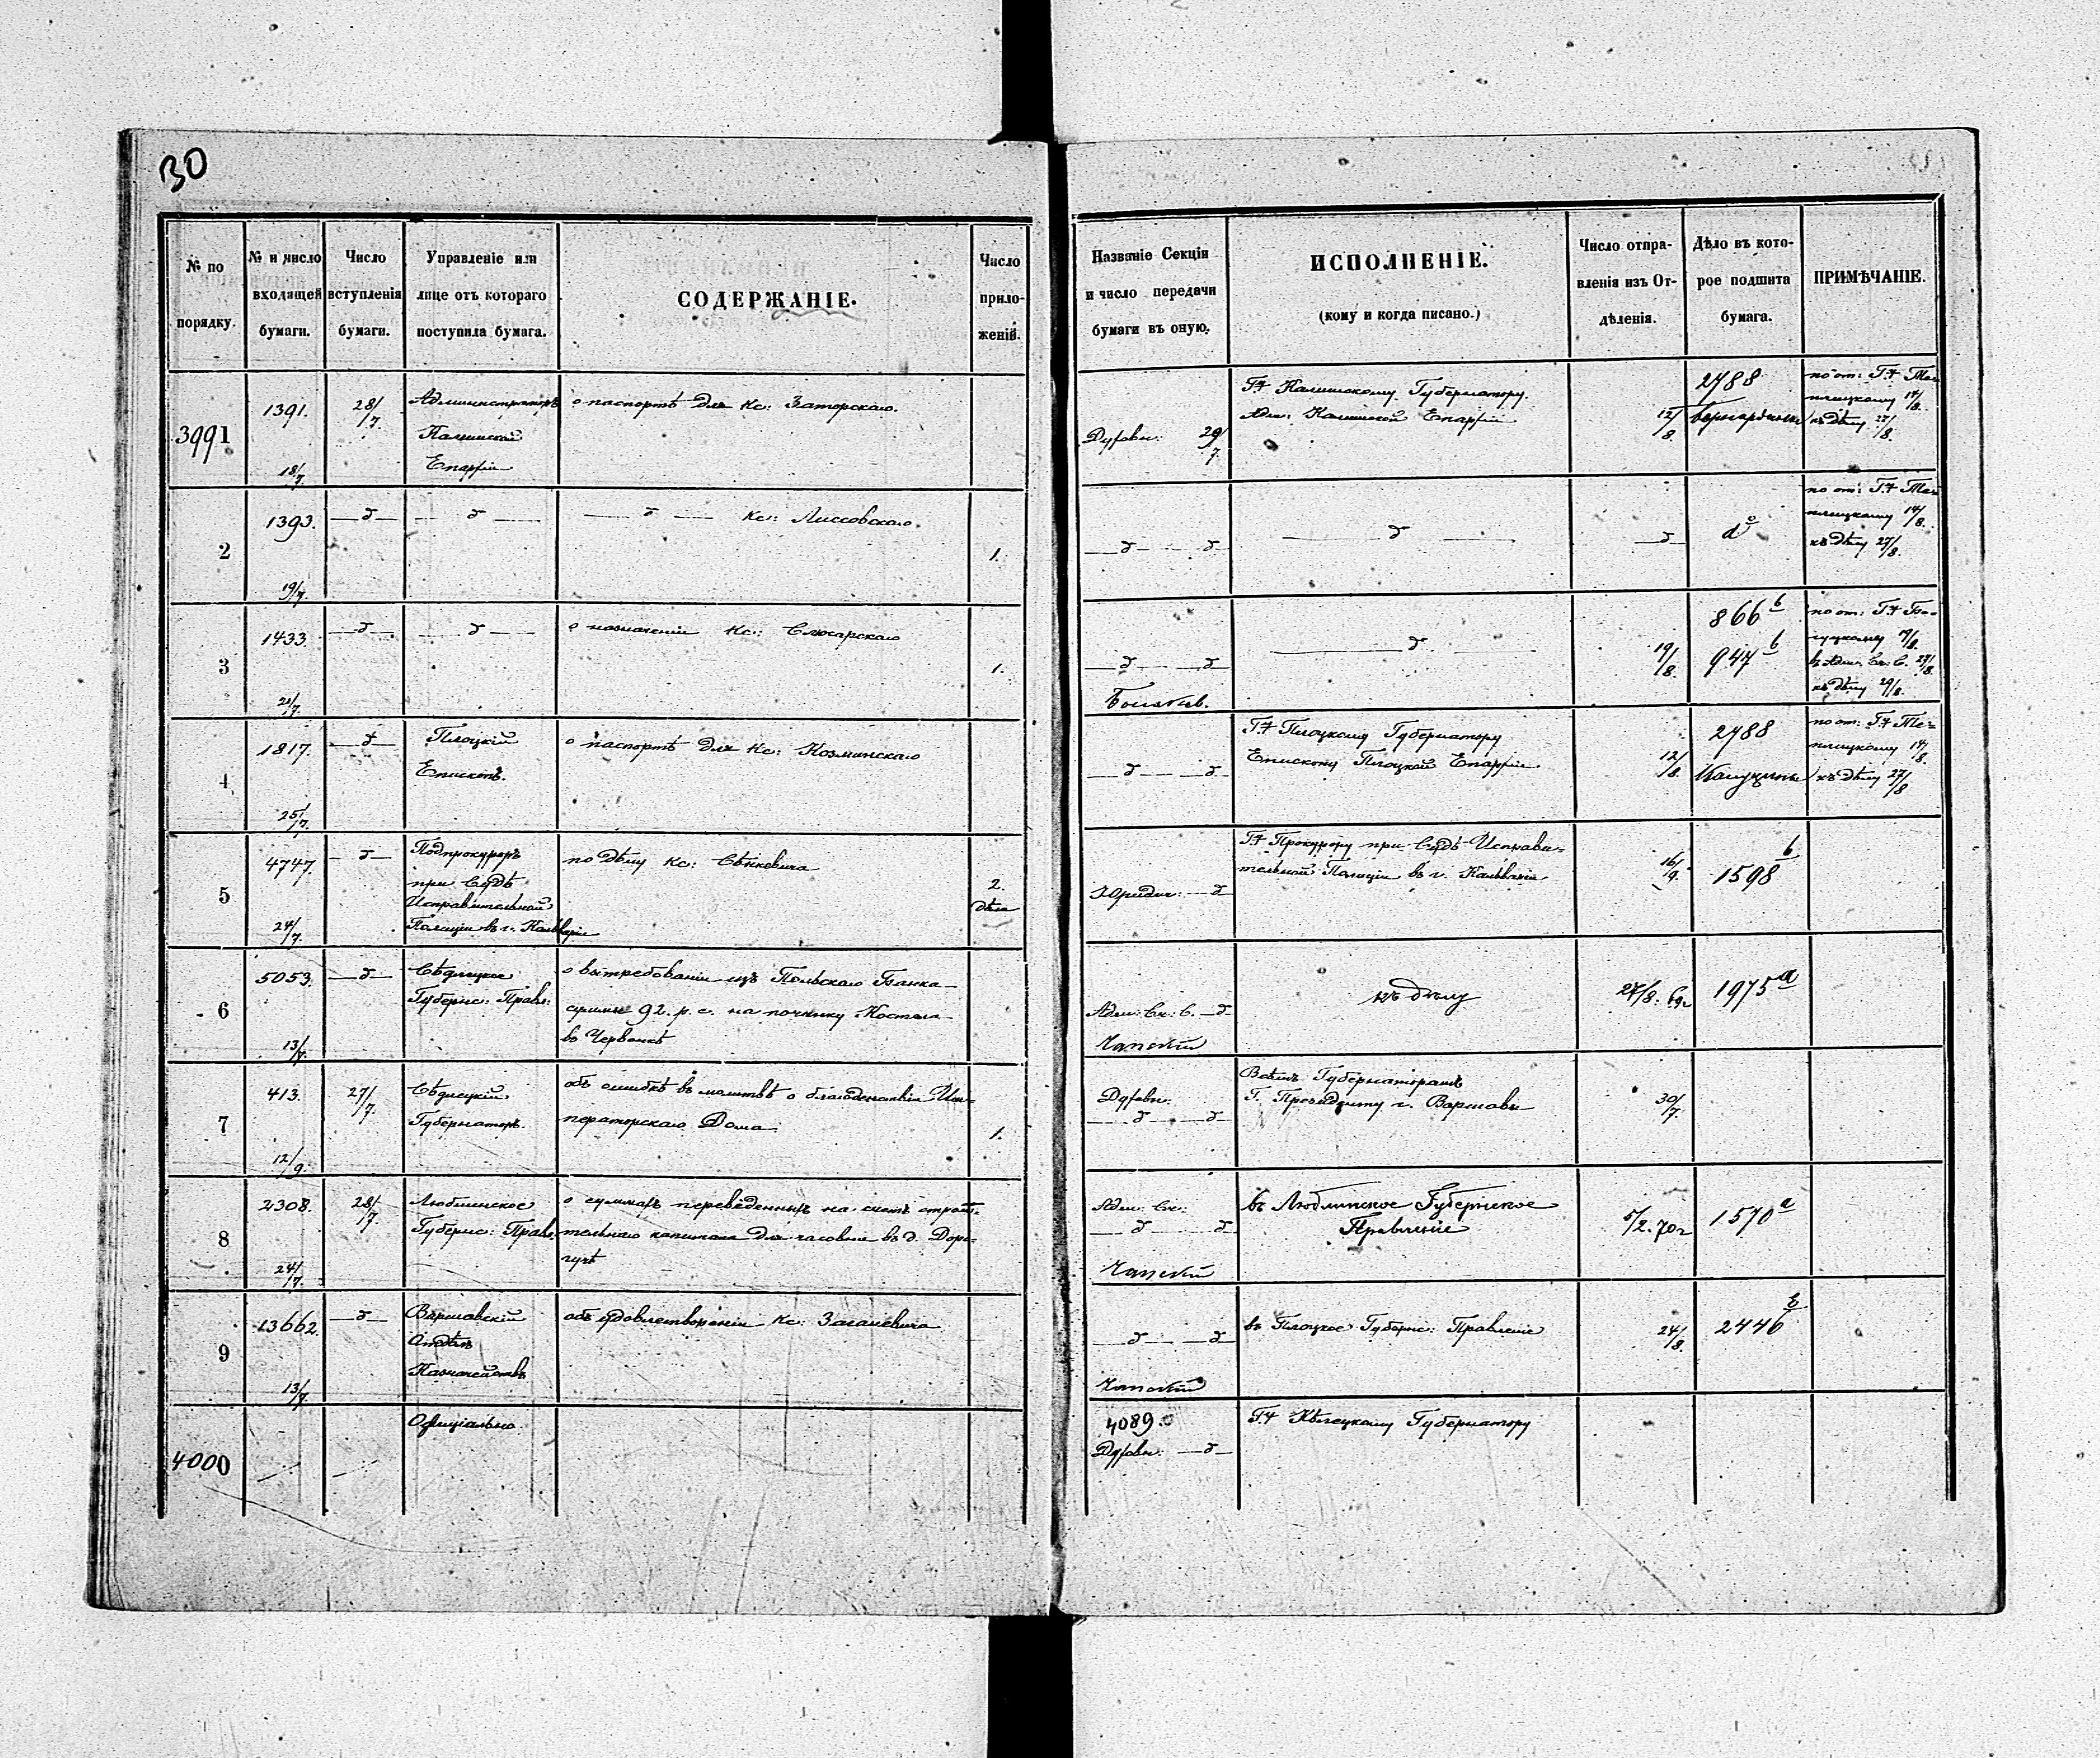 30
№ по порядку.
№ и число входящей бумаги.
Число вступленія бумаги.
Управленіе или лице отъ котораго поступила бумага.
СОДЕРЖАНІЕ.
Число прило-женій.
Названіе Секціи и число передачи бумаги въ оную.
ИСПОЛНЕНІЕ.
(кому и когда писано.)
Число отпра-вленія изъ От-дѣленія.
Дѣло въ кото-рое подшита бумага.
ПРИМѢЧАНІЕ.
3991
1391.
18/7.
28/7.
Администраторъ
Калишской
Епархіи
о паспортѣ для Кс: Заторскаго.
Духовн: 29/7.
Г. Калишскому Губернатору.
Адм: Калишской Епархіи
12/8
2788
бернардины
по от: Г.
плицкому 14/8.
къ дѣлу 27/8.
2
1393.
19/7.
—δ—
—δ—
—δ— Кс: Лиссовскаго.
1.
—δ— —δ
—δ—
—δ—
d°
по от: Г.
плицкому 14/8.
къ дѣлу 27/8.
3
1433.
21/7.
—δ—
—δ—
о назначеніи Кс: Слюсарскаго
1.
—δ— —δ
—δ—
19/8.
866 b
947 b
по от: Г.
къ дѣлу 29/8.
4
1817.
25/7.
—δ—
Плоцкій
Епископъ.
о паспортѣ для Кс: Козминскаго
—δ— —δ
Г. Плоцкому Губернатору
Епископу Плоцкой Епархіи
12/8.
2788
Капуцины
по от: Г.
плицкому 14/8.
къ дѣлу 27/8
5
4747.
24/7.
—δ—
Подпрокуроръ
при Судѣ
Исправительной
Полиціи въ г. Кальваріи
по дѣлу Кс: Сѣнкевича
2.
дѣла
Юридич: —δ
Г. Прокурору при Судѣ Исправи-
тельной Полиціи въ г. Кальваріи
16/9.
1598 b
6
5053.
13/7.
—δ—
Сѣдлецкое
Губернс: Правл:
о вытребованіи изъ Польскаго Банка
суммы 92. р. с. на починку Костела
въ Червонкѣ
Адм: Ск: С. —δ
Чапскій
къ дѣлу
27/8. 69г
1975 a
7
413.
12/9.
27/7.
Сѣдлецкій
Губернаторъ.
объ ошибкѣ въ молитвѣ о благоденствіи Им-
ператорскаго Дома
1.
Духовн:
—δ— —δ
Всѣмъ Губернаторамъ
Г. Президенту г. Варшавы
30/7.
8
2308.
24/7.
28/7.
Люблинское
Губернс: Правл.
о суммахъ переведенныхъ на счетъ строи-
тельнаго капитала для часовни въ д. Доро-
гучѣ
Адм: Ск:
—δ— —δ
Чапскій
въ Люблинское Губернское
Правленіе
5/2. 70г
1570 a
9
13662.
13/7.
—δ—
Варшавскій
Отдѣлъ
Казначействъ
объ удовлетвореніи Кс: Заганевича
—δ— —δ
Чапскій
въ Плоцкое Губернс: Правленіе
24/8.
2446 b
4000
Офиціально
4089.
Духовн: —δ—
Г. Кѣлецкому Губернатору